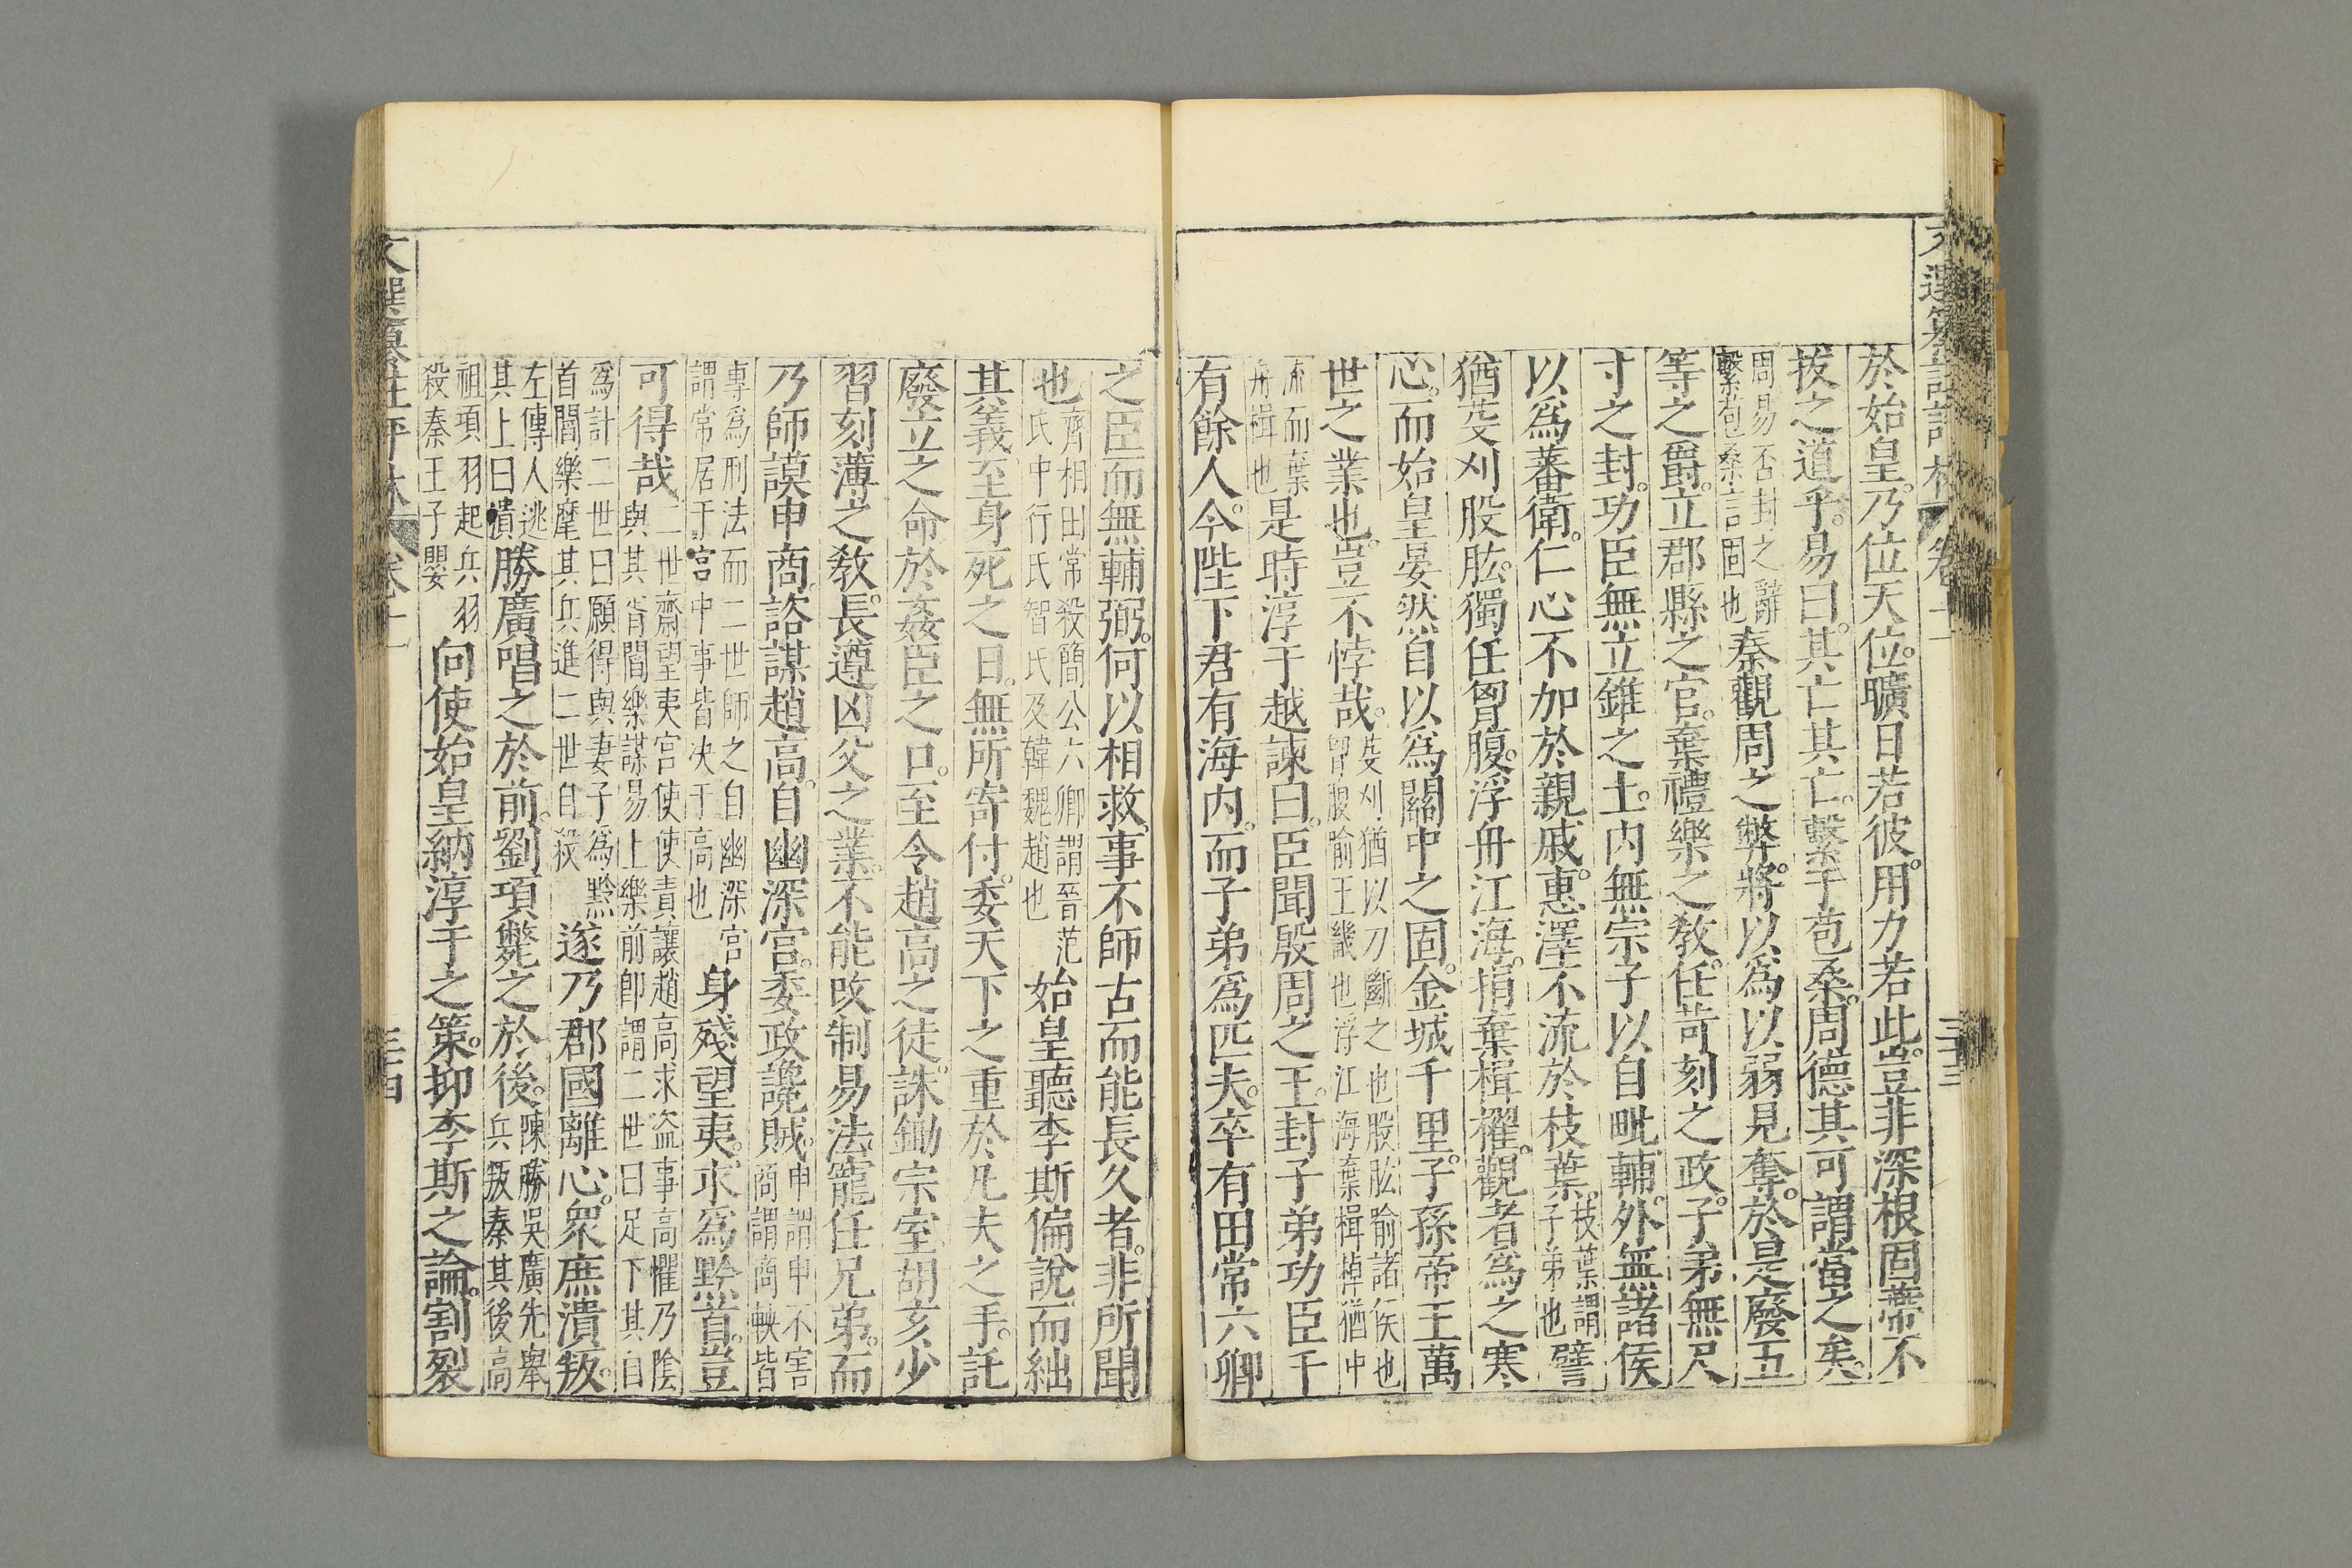 於始皇乃位天位曠日若彼用力若此豈非深根固蔕不
拔之道乎易曰其亡其亡繫于苞桑周德其可謂當之矣
周易否卦之辭
繫苞桑言固也
秦觀周之弊將以為以弱見奪於是廢五
等之爵立郡縣之官棄禮樂之敎任苛刻之政子弟無尺
寸之封功臣無立錐之土内無宗子以自毗輔外無諸侯
以爲蕃衛仁心不加於親戚惠澤不流於枝葉
枝葉謂
子弟也
譬
猶芟刈股肱獨任胷腹浮舟江海捐棄楫櫂觀者爲之寒
心而始皇晏然自以爲關中之固金城千里子孫帝王萬
世之業也豈不悖哉
芟刈猶以刀斷之也股肱喻諸侯也
胷腹喻王畿也浮江海棄楫棹猶中
流而棄
舟楫也
是時淳于越諫曰臣聞殷周之王封子弟功臣千
有餘人今陛下君有海内而子弟爲匹夫卒有田常六卿
之臣而無輔弼何以相救事不師古而能長久者非所聞
也
齊相田常殺簡公六卿謂晉范
氏中行氏智氏及韓魏趙也
始皇聽李斯偏說而絀
其義至身死之日無所寄付委天下之重於凡夫之手託
廢立之命於姦臣之口至令趙高之徒誅鋤宗室胡亥少
習刻薄之敎長遵凶父之業不能改制易法寵任兄弟而
乃師謨申商諮謀趙高自幽深宮委政讒賊
申謂申不害
商謂商鞅皆
專爲刑法而二世師之自幽深宮
謂常居于宮中事皆决于高也
身殘望夷求爲黔首豈
可得哉
二世齋望夷宮使使責讓趙高求盜事高懼乃陰
與其壻閻樂謀易上樂前卽謂二世曰足下其自
爲計二世曰願得與妻子爲黔
首閻樂麾其兵進二世自殺
遂乃郡國離心衆庶潰叛
左傳人逃
其上曰潰
勝廣唱之於前劉項斃之於後
陳勝吳廣先舉
兵叛秦其後高
祖項羽起兵羽
殺秦王子嬰
向使始皇納淳于之策抑李斯之論割裂
卷十二
三十四